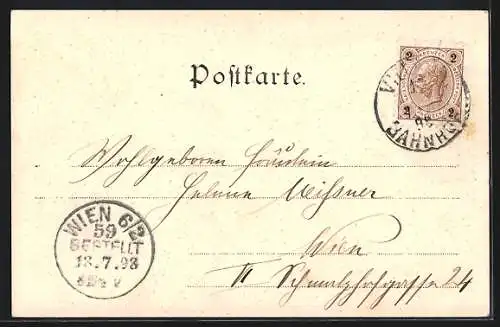 Postkarte.
2 2
2 2
BAHNHO
Wohlgeboren Fräulein
Helene Meißner
Wien
VI Schmalzhofgasse 24
WIEN 6/2
59
BESTELLT
18.7.98